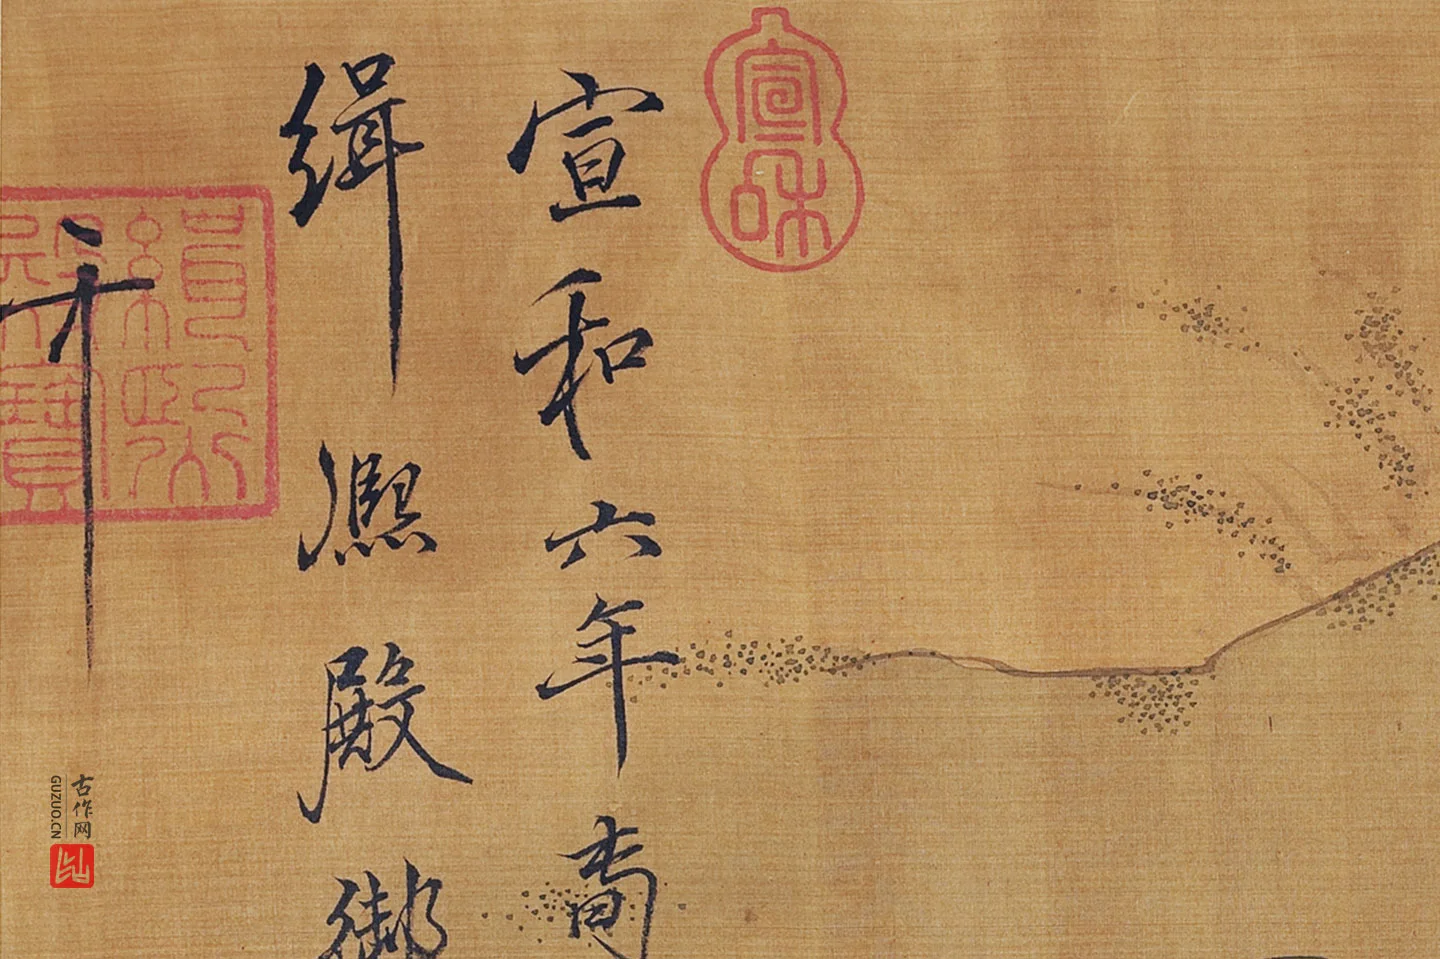 宣和
宣和六年
緝熙殿御
緝熙
殿寶
古作网
GUZUO.CN